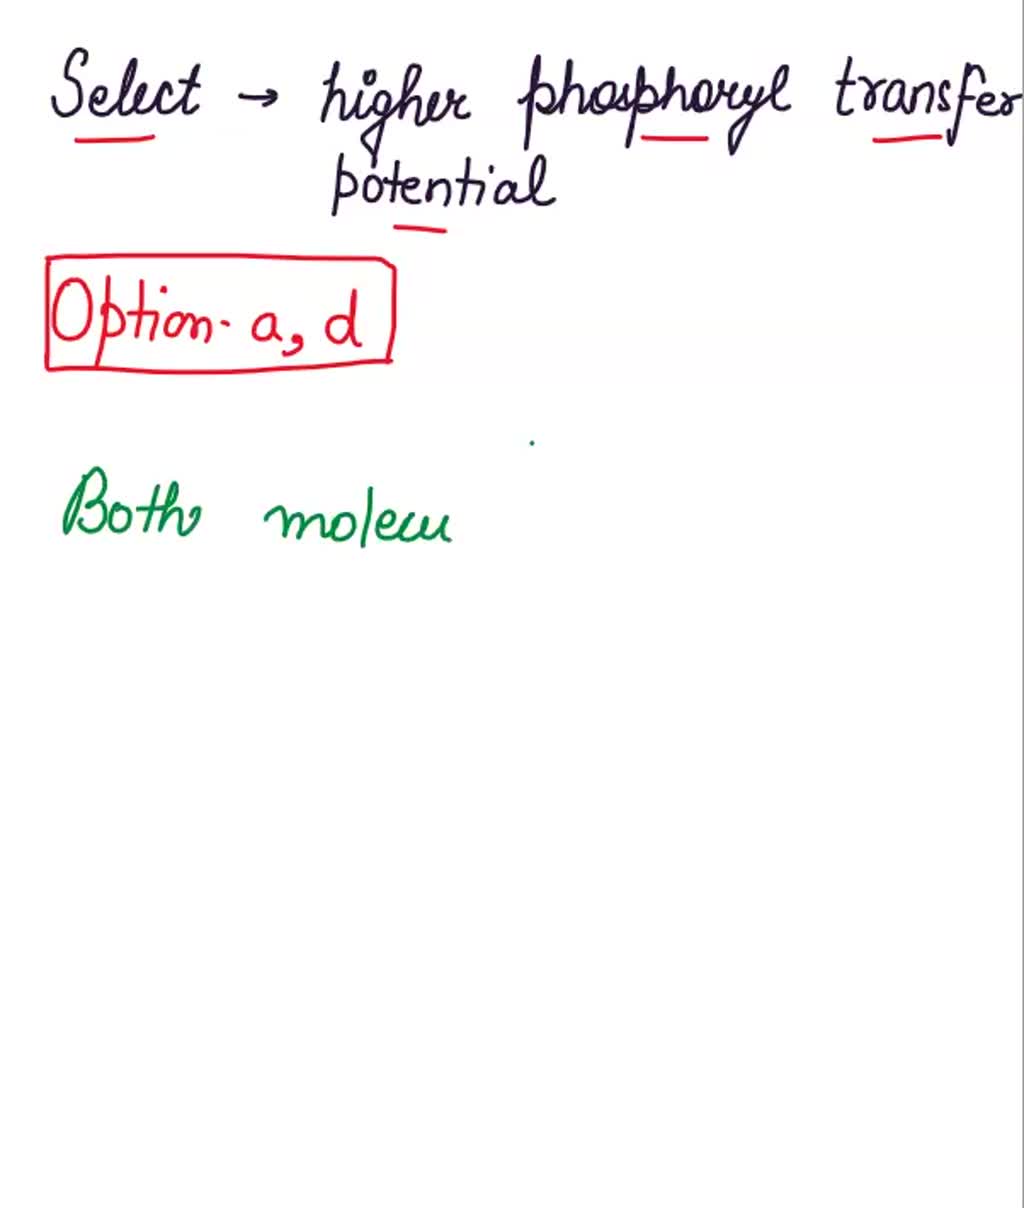 Select → higher phosphoryl transfer
potential
Option. a, d
Both molecu